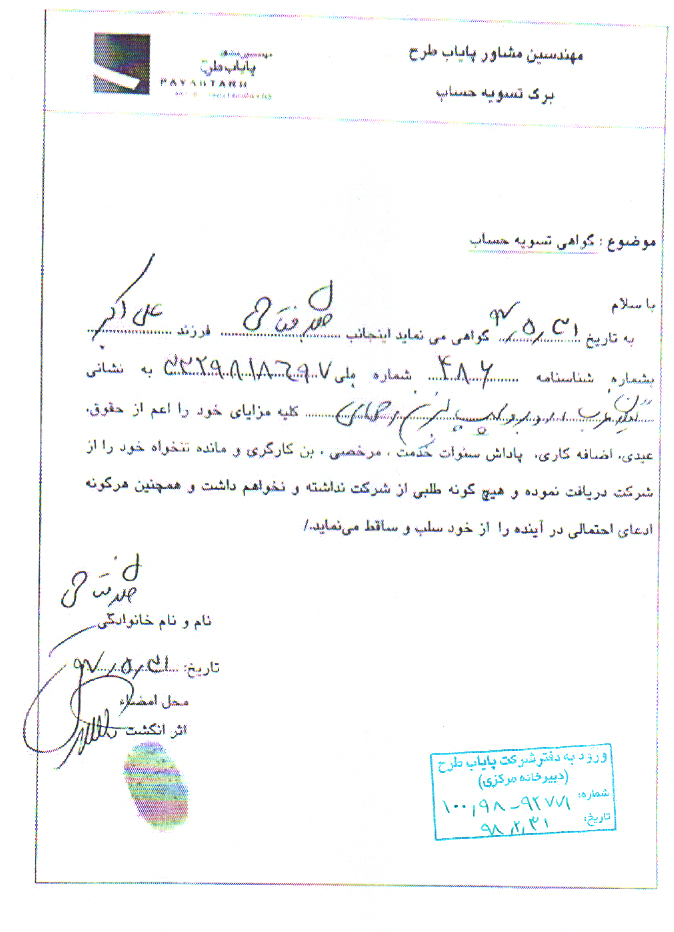 مهندسین مشاور پایاب طرح
برگ تسویه حساب
مهندسین مشاور
پایاب طرح
PAYABTARH
موضوع : گواهی تسویه حساب
با سلام
به تاریخ ۹۷,۵,۳۱ گواهی می نماید اینجانب فرزند علی اکبر
بشماره شناسنامه ۴۸۶ شماره ملی به نشانی
کلیه مزایای خود را اعم از حقوق،
عیدی، اضافه کاری، پاداش سنوات خدمت ، مرخصی ، بن کارگری و مانده تنخواه خود را از
شرکت دریافت نموده و هیچ گونه طلبی از شرکت نداشته و نخواهم داشت و همچنین هرگونه
ادعای احتمالی در آینده را از خود سلب و ساقط می‌نماید./
نام و نام خانوادگی
تاریخ: ۹۷,۵,۳۱
محل امضاء
اثر انگشت
ورود به دفتر شرکت پایاب طرح
(دبیرخانه مرکزی)
شماره: ۱۰۰,۹۸-۹۲۷۷۱
تاریخ: ۹۸,۲,۳۱